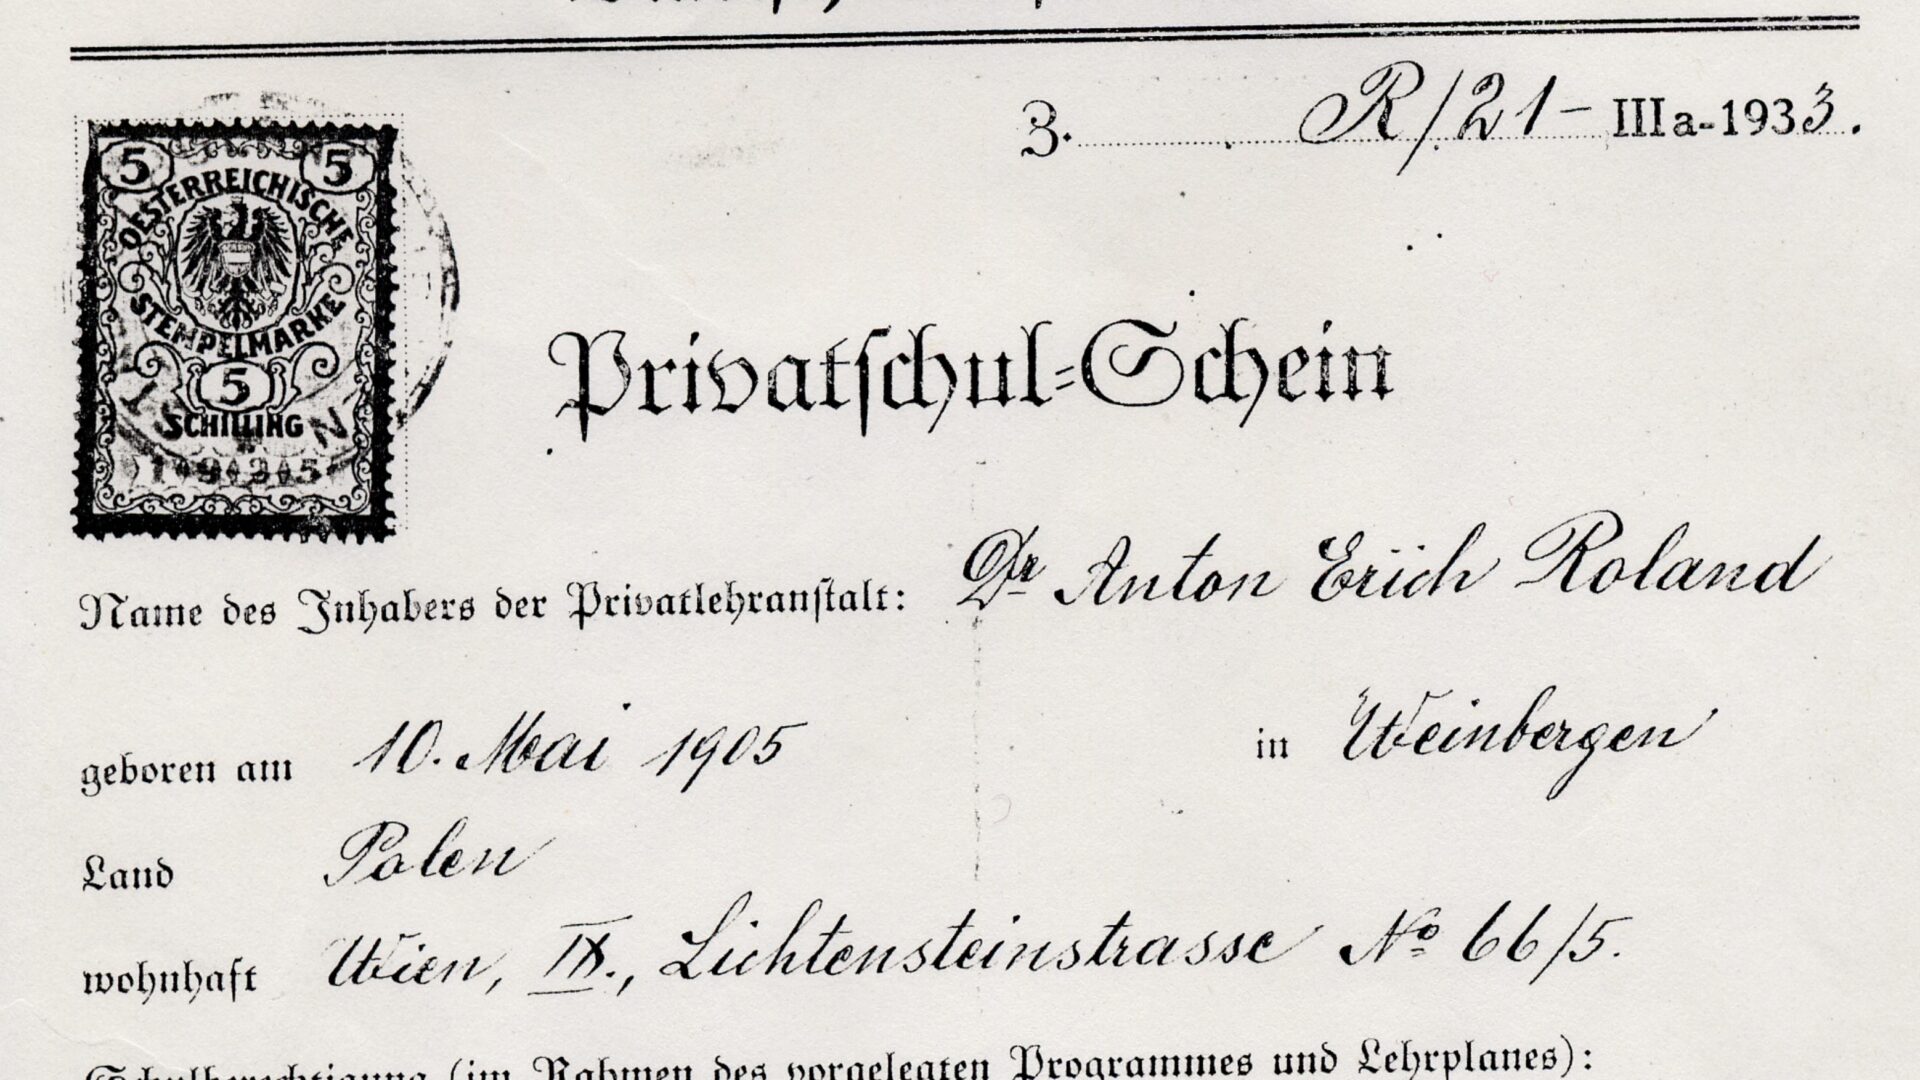 Z. R/21- IIIa-1933.
5 5
OESTERREICHISCHE
STEMPELMARKE
5
SCHILLING
Privatschul-Schein
Name des Inhabers der Privatlehranstalt: Dr Anton Erich Roland
geboren am 10. Mai 1905 in Weinbergen
Land Polen
wohnhaft Wien, IX., Lichtensteinstrasse No 66/5.
Schulberechtigung (im Rahmen des vorgelegten Programmes und Lehrplanes):